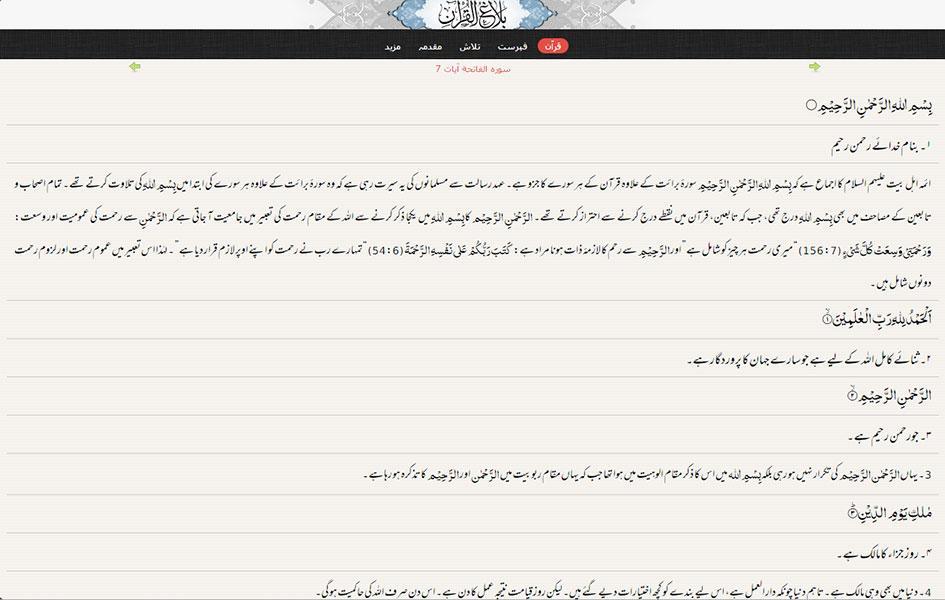 بلاغ القرآن
قرآن فہرست تلاش مقدمہ مزید
سورہ الفاتحة آیات 7
بِسْمِ اللّٰهِ الرَّحْمٰنِ الرَّحِیْمِ○
۱۔ بنام خدائے رحمن رحیم
ائمہ اہل بیت علیہم السلام کا اجماع ہے کہ بِسْمِ اللّٰهِ الرَّحْمٰنِ الرَّحِیْمِ سورۂ برائت کے علاوہ قرآن کے ہر سورے کا جزو ہے۔ عہد رسالت سے مسلمانوں کی یہ سیرت رہی ہے کہ وہ سورۂ برائت کے علاوہ ہر سورے کی ابتدا میں بِسْمِ اللّٰهِ کی تلاوت کرتے تھے۔ تمام اصحاب و
تابعین کے مصاحف میں بھی بِسْمِ اللّٰهِ درج تھی، جب کہ تابعین، قرآن میں نقطے درج کرنے سے احتراز کرتے تھے۔ الرَّحْمٰنِ الرَّحِیْمِ کا بِسْمِ اللّٰهِ میں یکجا ذکر کرنے سے اللہ کے مقام رحمت کی تعبیر میں جامعیت آ جاتی ہے کہ الرَّحْمٰنِ سے رحمت کی عمومیت اور وسعت:
وَرَحْمَتِیْ وَسِعَتْ كُلَّ شَیْءٍ (156:7) ”میری رحمت ہر چیز کو شامل ہے“ اور الرَّحِیْمِ سے رحم کا لازمۂ ذات ہونا مراد ہے: كَتَبَ رَبُّكُمْ عَلٰی نَفْسِهِ الرَّحْمَةَ (54:6) ”تمہارے رب نے رحمت کو اپنے اوپر لازم قرار دیا ہے“۔ لہٰذا اس تعبیر میں عموم رحمت اور لزوم رحمت
دونوں شامل ہیں۔
اَلْحَمْدُ لِلّٰهِ رَبِّ الْعٰلَمِیْنَۙ۱
۲۔ ثنائے کامل اللہ کے لیے ہے جو سارے جہان کا پروردگار ہے۔
الرَّحْمٰنِ الرَّحِیْمِۙ۲
۳۔ جو رحمن رحیم ہے۔
3۔ یہاں الرَّحْمٰنِ الرَّحِیْمِ کی تکرار نہیں ہو رہی بلکہ بِسْمِ اللّٰه میں اس کا ذکر مقام الوہیت میں ہوا تھا جب کہ یہاں مقام ربوبیت میں الرَّحْمٰنِ اور الرَّحِیْمِ کا تذکرہ ہو رہا ہے۔
مٰلِكِ یَوْمِ الدِّیْنِؕ۳
۴۔ روز جزاء کا مالک ہے۔
4۔ دنیا میں بھی وہی مالک ہے۔ تاہم دنیا چونکہ دار العمل ہے، اس لیے بندے کو کچھ اختیارات دیے گئے ہیں۔ لیکن روز قیامت نتیجۂ عمل کا دن ہے۔ اس دن صرف اللہ کی حاکمیت ہو گی۔